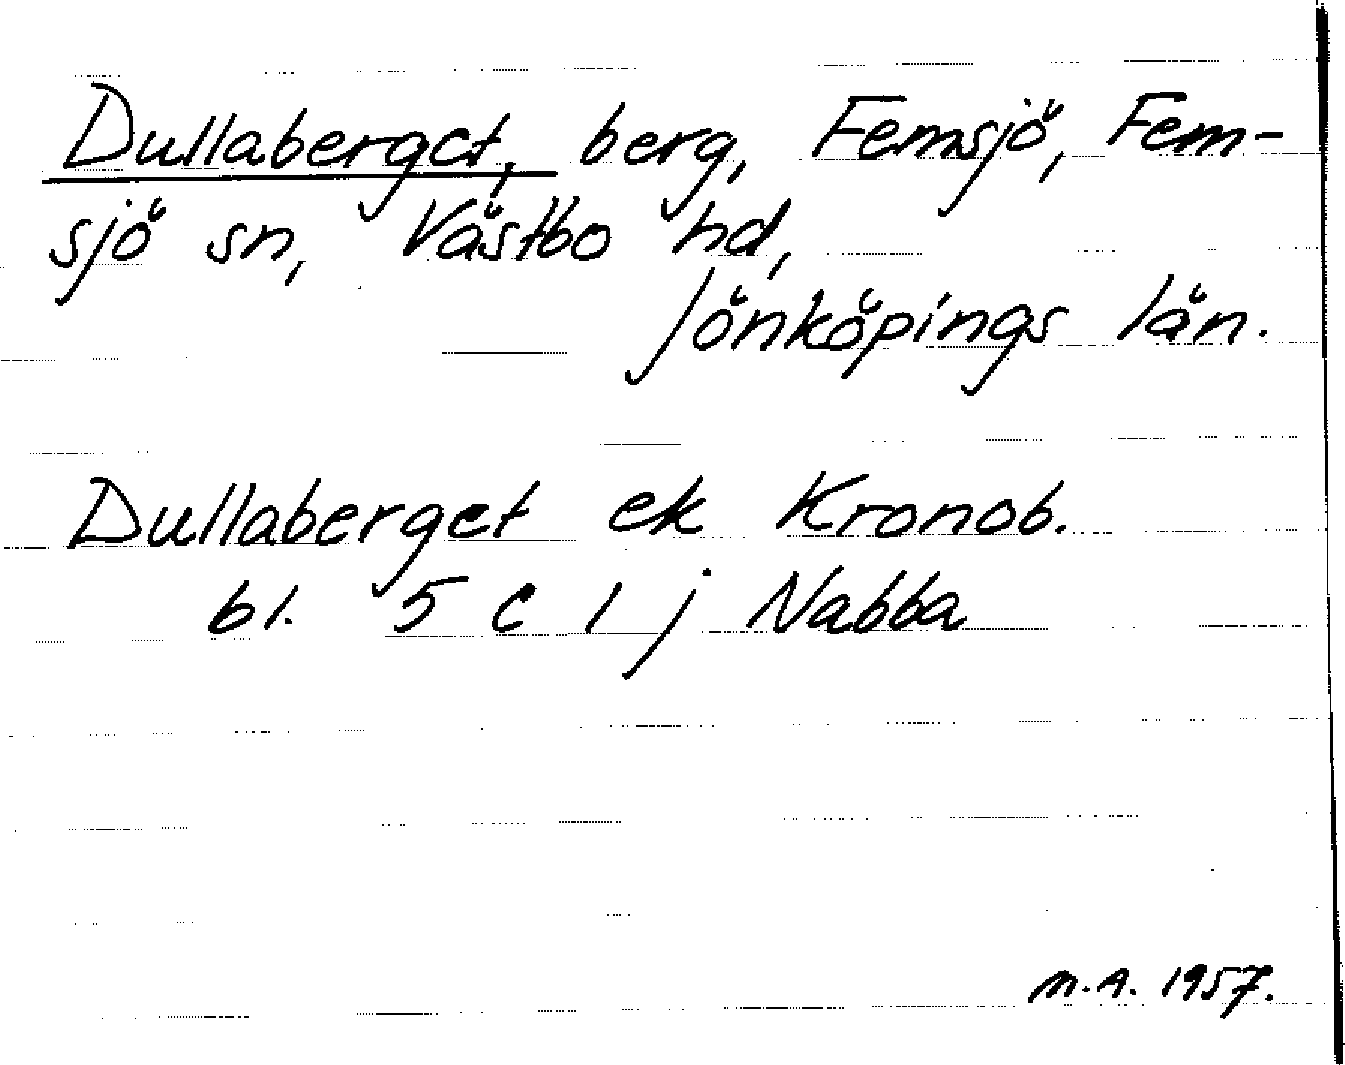 Dullaberget, berg, Femsjö, Fem-
sjö sn, Västbo hd,
Jönköpings län.
Dullaberget ek Kronob.
bl. 5 C 1 j Nabba
M.A. 1957.